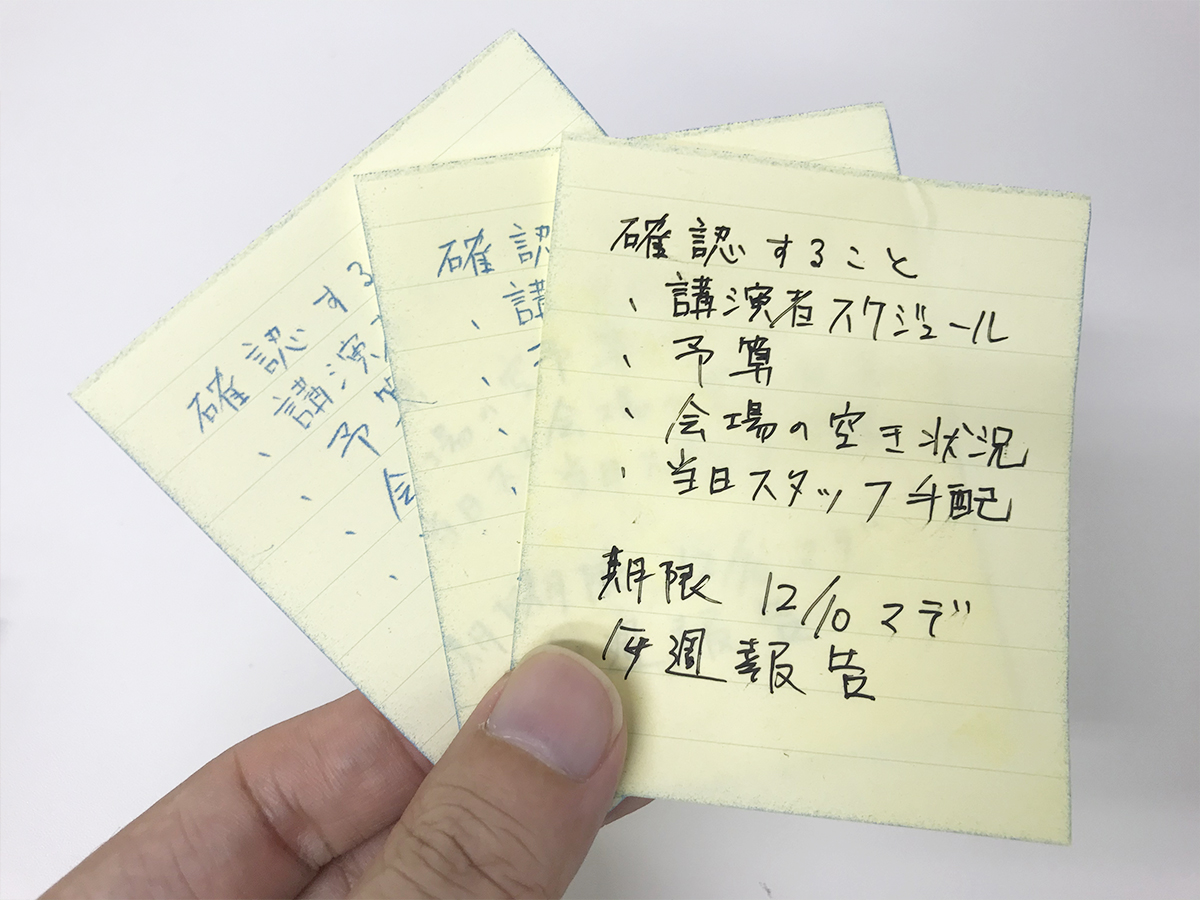 確認すること
、講演者スケジュール
、予算
、会場の空き状況
、当日スタッフ手配
期限 12/10マデ
毎週報告
確認
、講
、
、
、
確認する
、講演
、予算
、会
、